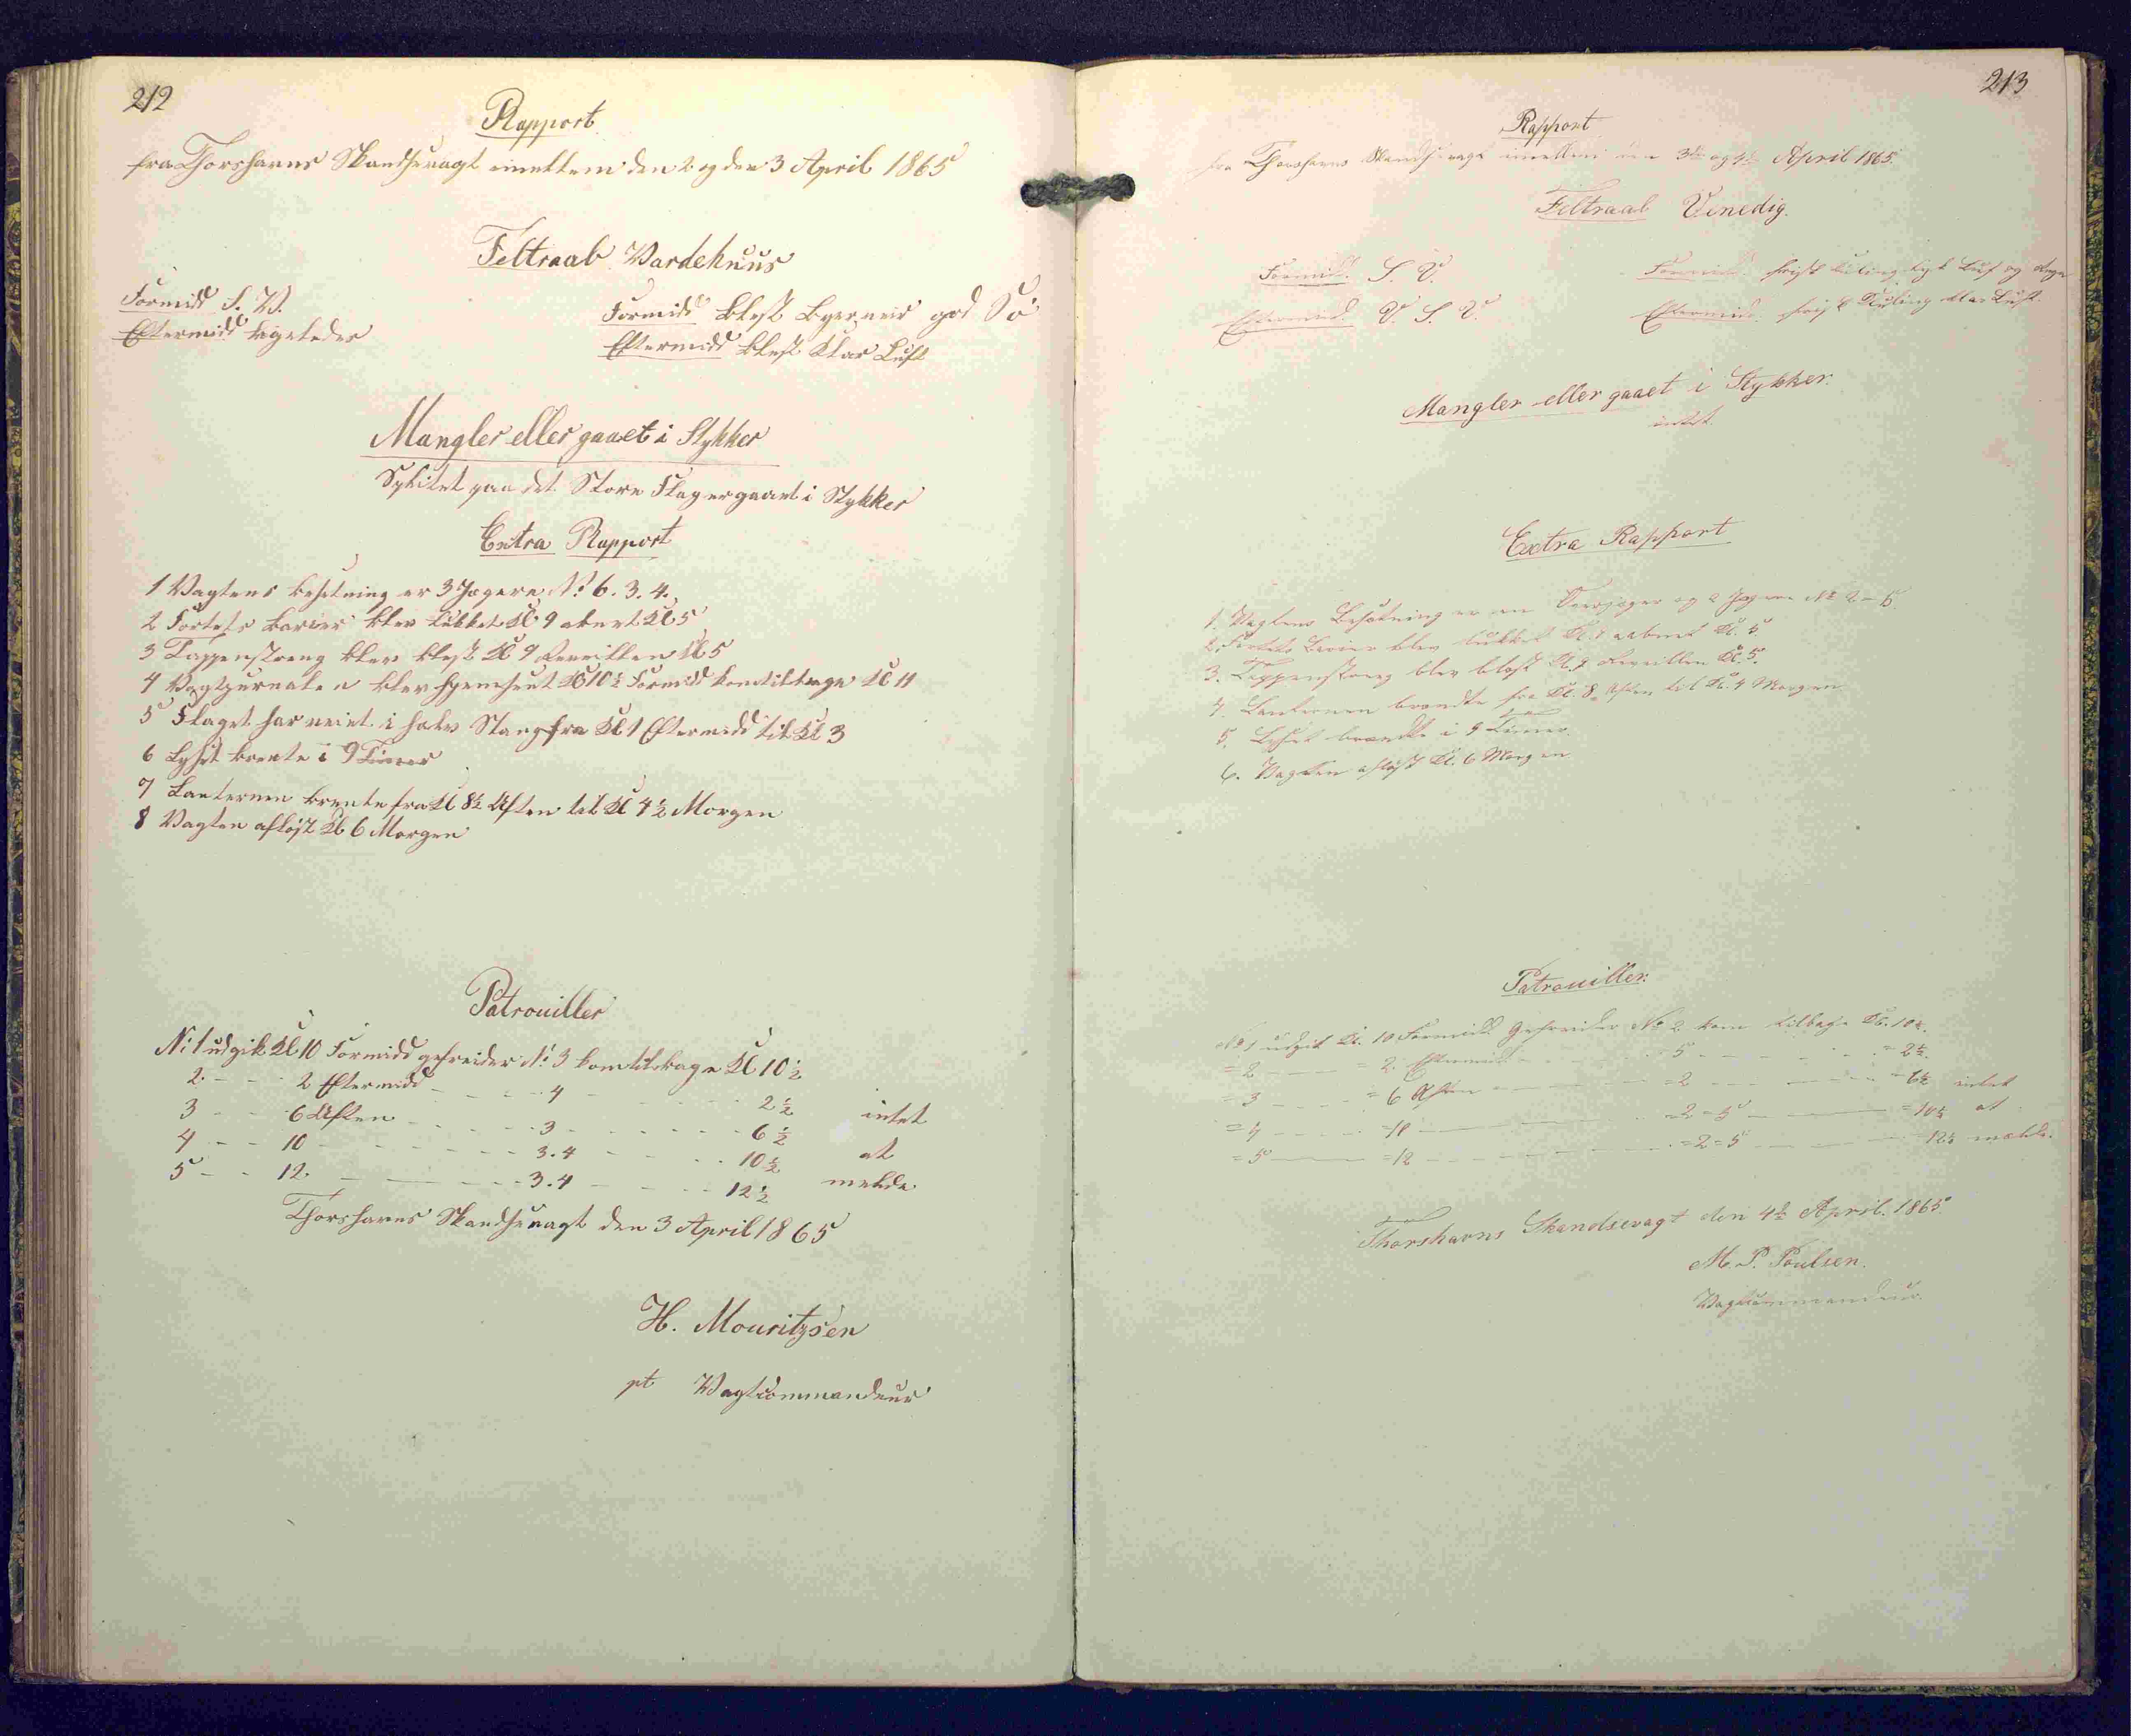 212
Rapport
fra Thorshavns Skandsevagt imellem den 2 og den 3 April 1865
Feltraab Vardehuus
Formidd S. V.
Eftermidd ligeledes
Formidd blest Byerveir god Sö
Eftermidd blest Klar Luft
Mangler eller gaaet i Stykker
paa det Store Flag ergaaet i Stykker
Extra Rapport
1 Vagtens besetning er 3 Jægere No 6. 3. 4.
2 Fortets barier blev lukket Kl 9 abent Kl 5
3 Tappenstreng blev blest Kl 9 Reveillen Kl 5
4 Vagtjurnalen blev hjemsent Kl 10½ Formidd kom tilbage Kl 11
5 Flaget har veiet i halv Stang fra Kl 1 Eftermidd til Kl 3
6 Lyset brente i 9 Timer
7 Lanternen brente fra Kl 8½ Aften til Kl 4½ Morgen
8 Vagten aflöst Kl 6 Morgen
Patrouiller
No 1 udgik Kl 10 Formidd gefreider No 3 kom tilbage Kl 10½
2 - - - 2 Eftermidd - - - 4 - - - 2½ intet
3 - - 6 Aften - - - 3 - - - 6½
4 - - 10 - - - 3.4 - - - 10½ at
5 - - 12 - - - 3.4 - - - 12½ melde
Thorshavns Skandsevagt den 3 April 1865
H. Mouritzsen
pt Vagtcommandeur
213
Rapport
fra Thorshavns Skandsevagt imellem den 3die og 4de April 1865.
Feltraab Venedig.
Formid. S. V.
Eftermid. V. S. V.
Formid. frisk Kuling tyk Luft og Regn
Eftermid. frisk Kuling klar Luft.
Mangler eller gaaet i Stykker.
intet.
Extra Rapport
1. Vagtens Besætning er en Overjæger og 2 Jægere No 2 = 5.
2. Fortets Barier blev lukket Kl. 9 aabnet Kl. 5.
3. Tappenstreg blev blæst Kl. 9 Reveillen Kl. 5.
4. Lanternen brændte fra Kl. 8 Aften til Kl. 4 Morgen
5. Lyset brændte i 9 Timer.
6. Vagten aflöst Kl. 6 Morgen
Patrouiller:
No 1 udgik Kl. 10 Formidd Gefreider No 2 kom tilbage Kl. 10½.
= 2 - - - = 2 Eftermid - - - = 5 - - - = 2½.
= 3 - - - = 6 Aften - - - = 2 - - - = 6½ intet
= 4 - - - = 10 - - - = 2 = 5 - - - = 10½ at
= 5 - - - = 12 - - - = 2 = 5 - - - = 12½ melde.
Thorshavns Skandsevagt den 4de April. 1865.
M. P. Poulsen.
Vagtcommandeur.